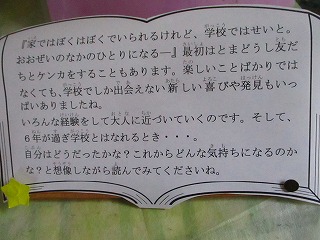 『家ではぼくはぼくでいられるけれど、学校ではせいと。
おおぜいのなかのひとりになる―』最初はとまどうし友だ
ちとケンカをすることもあります。楽しいことばかりでは
なくても、学校でしか出会えない新しい喜びや発見もいっ
ぱいありましたね。
いろんな経験をして大人に近づいていくのです。そして、
６年が過ぎ学校とはなれるとき・・・。
自分はどうだったかな？これからどんな気持ちになるのか
な？と想像しながら読んでみてくださいね。